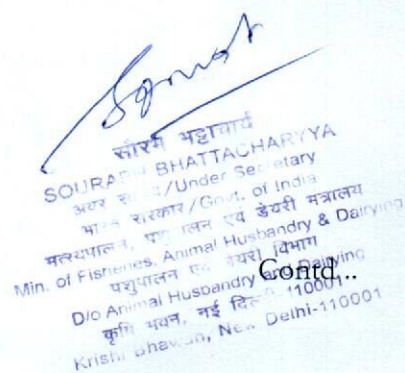 सौरभ भट्टाचार्य
BHATTACHARYYA
अवर सचिव/Under Secretary
भारत सरकार/Govt. of India
मत्स्यपालन, पशुपालन एवं डेयरी मंत्रालय
Min. of Fisheries, Animal Husbandry & Dairying
पशुपालन एवं डेयरी विभाग
D/o Animal Husbandry and Dairying
Contd..
कृषि भवन, नई दिल्ली-110001
Krishi Bhawan, New Delhi-110001